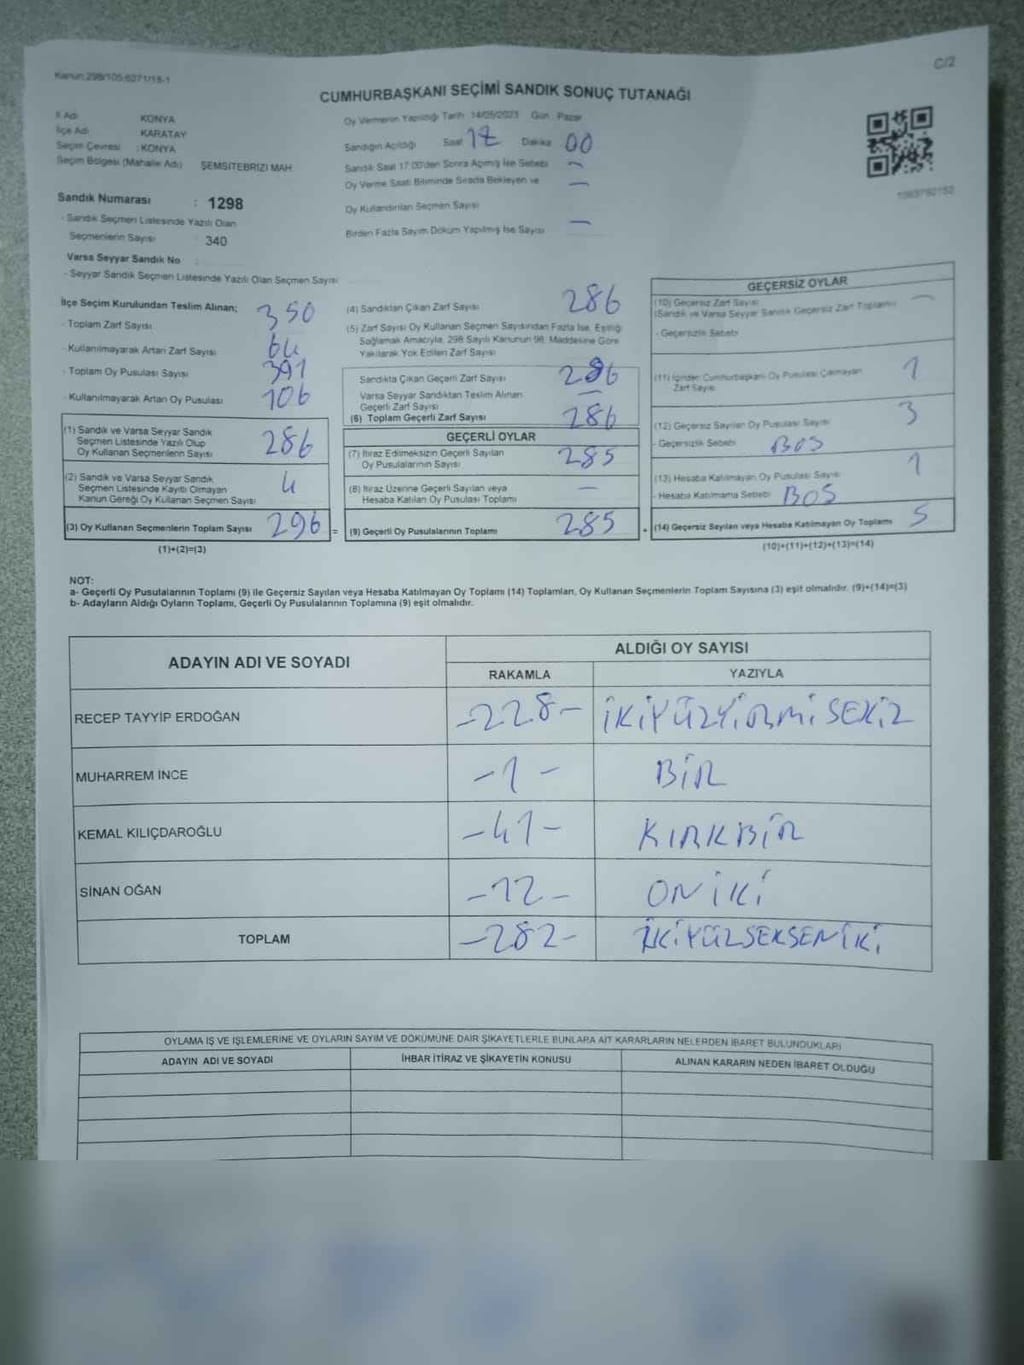 Kanun:298/105;6271/18-1
C/2
CUMHURBAŞKANI SEÇİMİ SANDIK SONUÇ TUTANAĞI
İl Adı KONYA
İlçe Adı KARATAY
Seçim Çevresi : KONYA
Seçim Bölgesi (Mahalle Adı) ŞEMSİTEBRİZİ MAH
Sandık Numarası : 1298
- Sandık Seçmen Listesinde Yazılı Olan
Seçmenlerin Sayısı : 340
Varsa Seyyar Sandık No
- Seyyar Sandık Seçmen Listesinde Yazılı Olan Seçmen Sayısı
Oy Vermenin Yapıldığı Tarih 14/05/2023 Gün : Pazar
Sandığın Açıldığı Saat 17 Dakika 00
Sandık Saat 17:00'den Sonra Açılmış İse Sebebi —
Oy Verme Saati Bitiminde Sırada Bekleyen ve —
Oy Kullandırılan Seçmen Sayısı
Birden Fazla Sayım Döküm Yapılmış İse Sayısı —
İlçe Seçim Kurulundan Teslim Alınan;
- Toplam Zarf Sayısı 350
- Kullanılmayarak Artan Zarf Sayısı 64
- Toplam Oy Pusulası Sayısı 391
- Kullanılmayarak Artan Oy Pusulası 106
(1) Sandık ve Varsa Seyyar Sandık
Seçmen Listesinde Yazılı Olup
Oy Kullanan Seçmenlerin Sayısı 286
(2) Sandık ve Varsa Seyyar Sandık
Seçmen Listesinde Kayıtlı Olmayan
Kanun Gereği Oy Kullanan Seçmen Sayısı 4
(3) Oy Kullanan Seçmenlerin Toplam Sayısı 296 =
(1)+(2)=(3)
(4) Sandıktan Çıkan Zarf Sayısı 286
(5) Zarf Sayısı Oy Kullanan Seçmen Sayısından Fazla İse, Eşitliği
Sağlamak Amacıyla, 298 Sayılı Kanunun 98. Maddesine Göre
Yakılarak Yok Edilen Zarf Sayısı
Sandıkta Çıkan Geçerli Zarf Sayısı 286
Varsa Seyyar Sandıktan Teslim Alınan
Geçerli Zarf Sayısı —
(6) Toplam Geçerli Zarf Sayısı 286
GEÇERLİ OYLAR
(7) İtiraz Edilmeksizin Geçerli Sayılan
Oy Pusulalarının Sayısı 285
(8) İtiraz Üzerine Geçerli Sayılan veya
Hesaba Katılan Oy Pusulası Toplamı —
(9) Geçerli Oy Pusulalarının Toplamı 285 +
GEÇERSİZ OYLAR
(10) Geçersiz Zarf Sayısı
(Sandık ve Varsa Seyyar Sandık Geçersiz Zarf Toplamı) —
- Geçersizlik Sebebi
(11) İçinden Cumhurbaşkanı Oy Pusulası Çıkmayan
Zarf Sayısı 1
(12) Geçersiz Sayılan Oy Pusulası Sayısı 3
- Geçersizlik Sebebi BOŞ
(13) Hesaba Katılmayan Oy Pusulası Sayısı 1
- Hesaba Katılmama Sebebi BOŞ
(14) Geçersiz Sayılan veya Hesaba Katılmayan Oy Toplamı 5
(10)+(11)+(12)+(13)=(14)
NOT:
a- Geçerli Oy Pusulalarının Toplamı (9) ile Geçersiz Sayılan veya Hesaba Katılmayan Oy Toplamı (14) Toplamları, Oy Kullanan Seçmenlerin Toplam Sayısına (3) eşit olmalıdır. (9)+(14)=(3)
b- Adayların Aldığı Oyların Toplamı, Geçerli Oy Pusulalarının Toplamına (9) eşit olmalıdır.
ADAYIN ADI VE SOYADI
ALDIĞI OY SAYISI
RAKAMLA YAZIYLA
RECEP TAYYİP ERDOĞAN -228- İKİYÜZYİRMİSEKİZ
MUHARREM İNCE -1- BİR
KEMAL KILIÇDAROĞLU -41- KIRKBİR
SİNAN OĞAN -12- ONİKİ
TOPLAM -282- İKİYÜZSEKSENİKİ
OYLAMA İŞ VE İŞLEMLERİNE VE OYLARIN SAYIM VE DÖKÜMÜNE DAİR ŞİKAYETLERLE BUNLARA AİT KARARLARIN NELERDEN İBARET BULUNDUKLARI
ADAYIN ADI VE SOYADI İHBAR İTİRAZ VE ŞİKAYETİN KONUSU ALINAN KARARIN NEDEN İBARET OLDUĞU